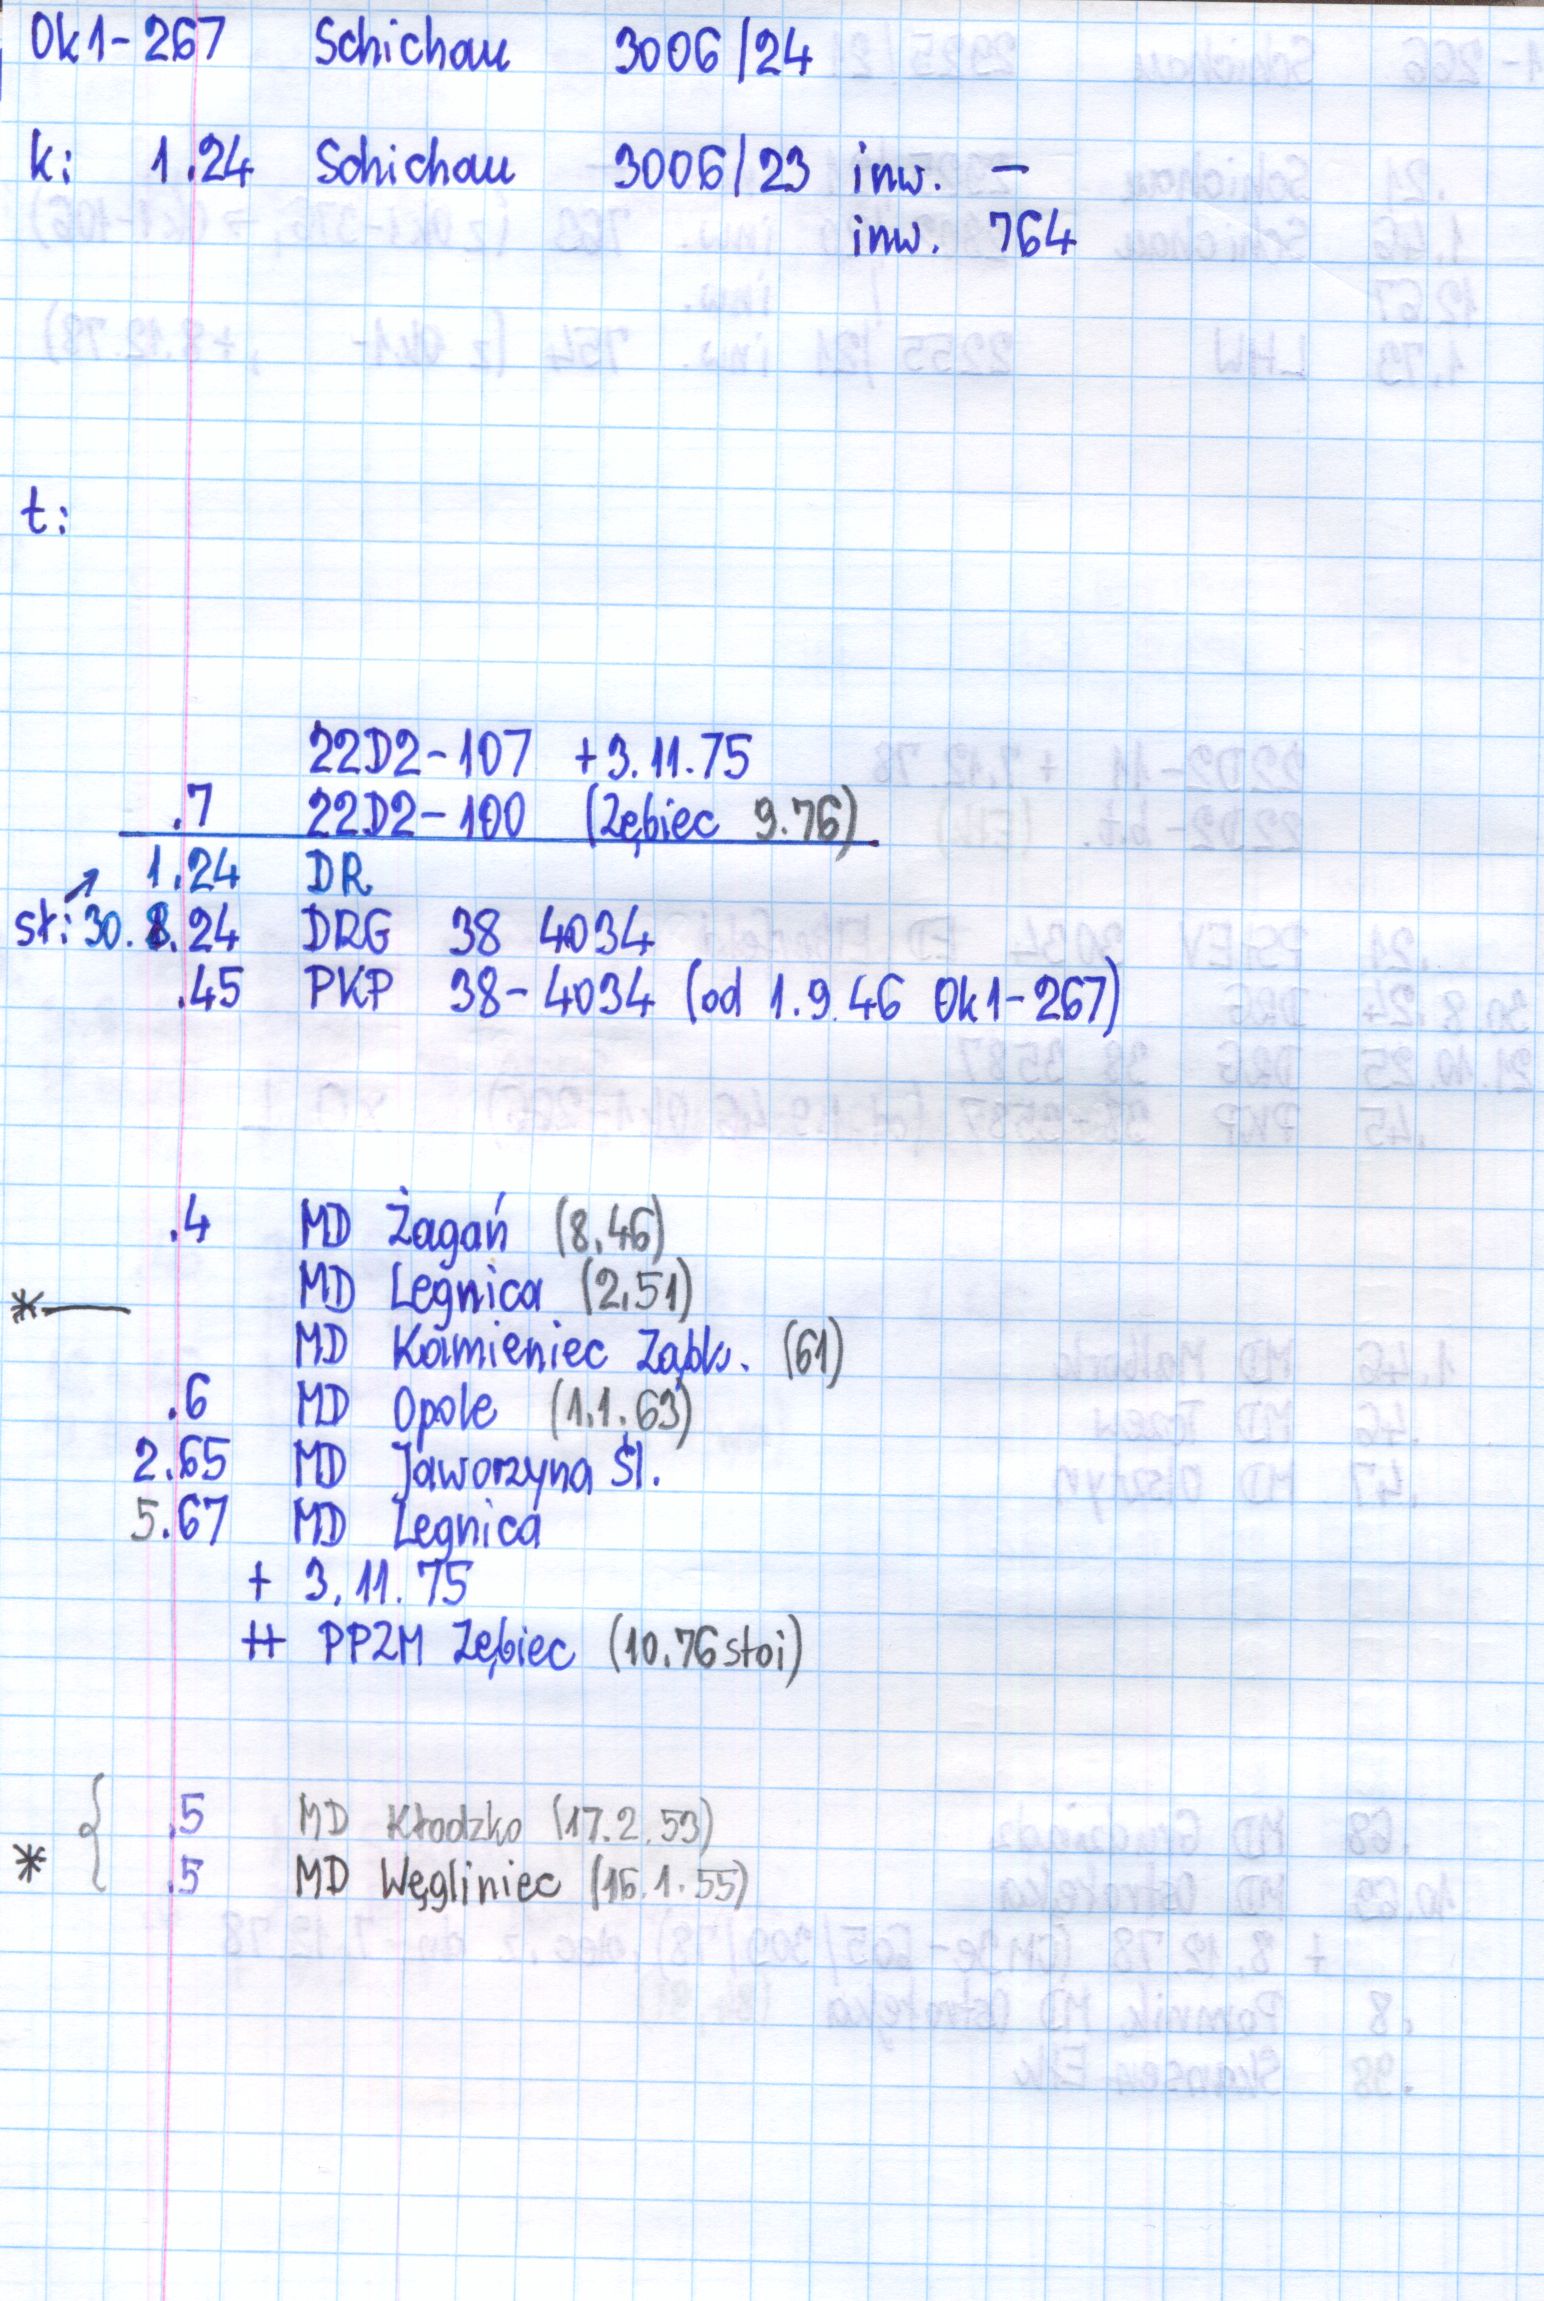 Ok1-267 Schichau 3006/24
k: 1.24 Schichau 3006/23 inw. -
inw. 764
t:
22D2-107 +3.11.75
.7 22D2-100 (Zębiec 9.76)
1.24 DR
st: 30.8.24 DRG 38 4034
.45 PKP 38-4034 (od 1.9.46 Ok1-267)
.4 MD Żagań (8.46)
MD Legnica (2.51)
*
MD Kamieniec Ząbk. (61)
.6 MD Opole (1.1.63)
2.65 MD Jaworzyna Śl.
5.67 MD Legnica
+ 3.11.75
++ PPZM Zębiec (10.76 stoi)
.5 MD Kłodzko (17.2.53)
* .5 MD Węgliniec (15.1.55)